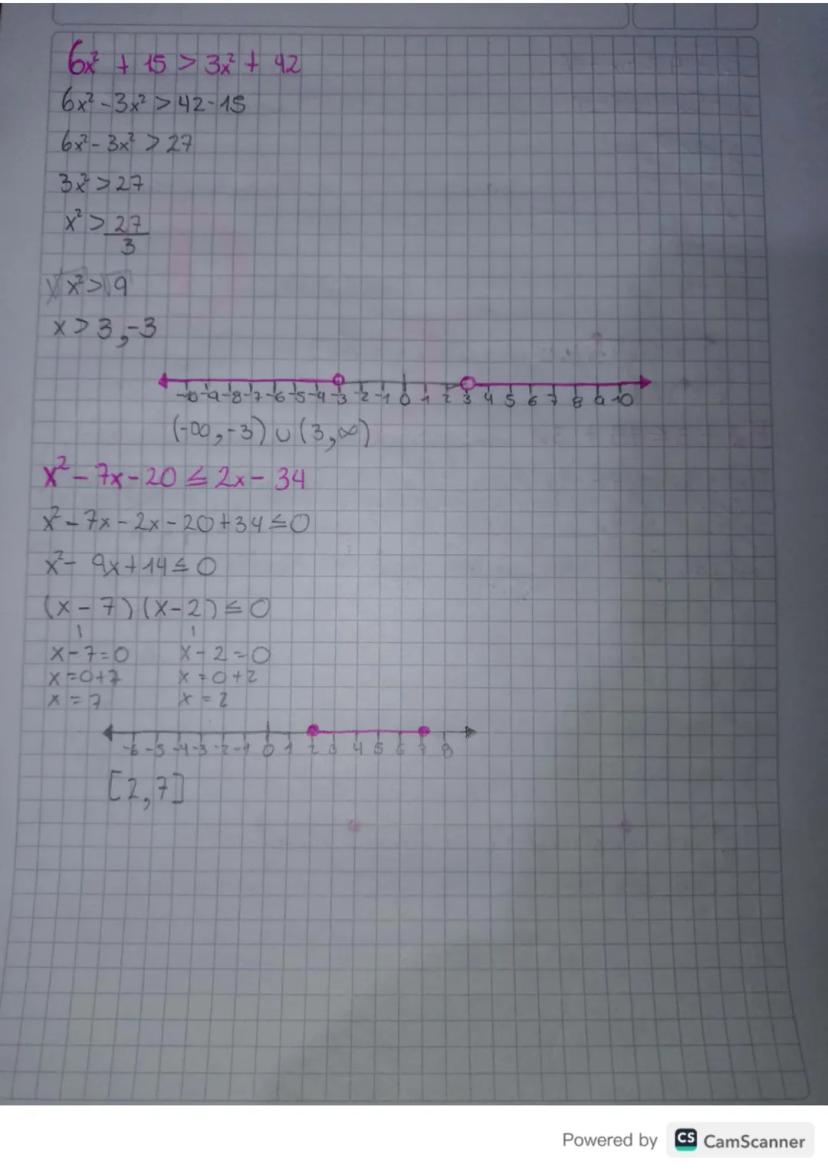 6x² + 15 > 3x² + 42
6x² - 3x² > 42 - 15
6x² - 3x² > 27
3x² > 27
x² > 27/3
√x² > √9
x > 3, -3
-10 -9 -8 -7 -6 -5 -4 -3 -2 -1 0 1 2 3 4 5 6 7 8 9 10
(-∞, -3) ∪ (3, ∞)
x² - 7x - 20 ≤ 2x - 34
x² - 7x - 2x - 20 + 34 ≤ 0
x² - 9x + 14 ≤ 0
(x - 7) (x - 2) ≤ 0
x - 7 = 0 x - 2 = 0
x = 0 + 7 x = 0 + 2
x = 7 x = 2
-6 -5 -4 -3 -2 -1 0 1 2 3 4 5 6 7 8
[2, 7]
Powered by CS CamScanner